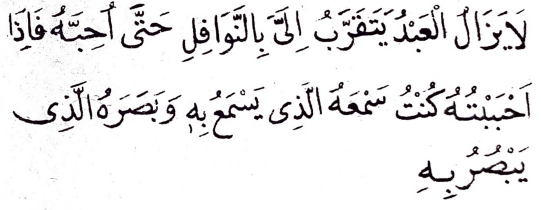 لَا يَزَالُ الْعَبْدُ يَتَقَرَّبُ اِلَىَّ بِالنَّوَافِلِ حَتَّى اُحِبَّهُ فَاِذَا
اَحْبَبْتُهُ كُنْتُ سَمْعَهُ الَّذِى يَسْمَعُ بِهِ وَبَصَرَهُ الَّذِى
يَبْصُرُ بِهِ